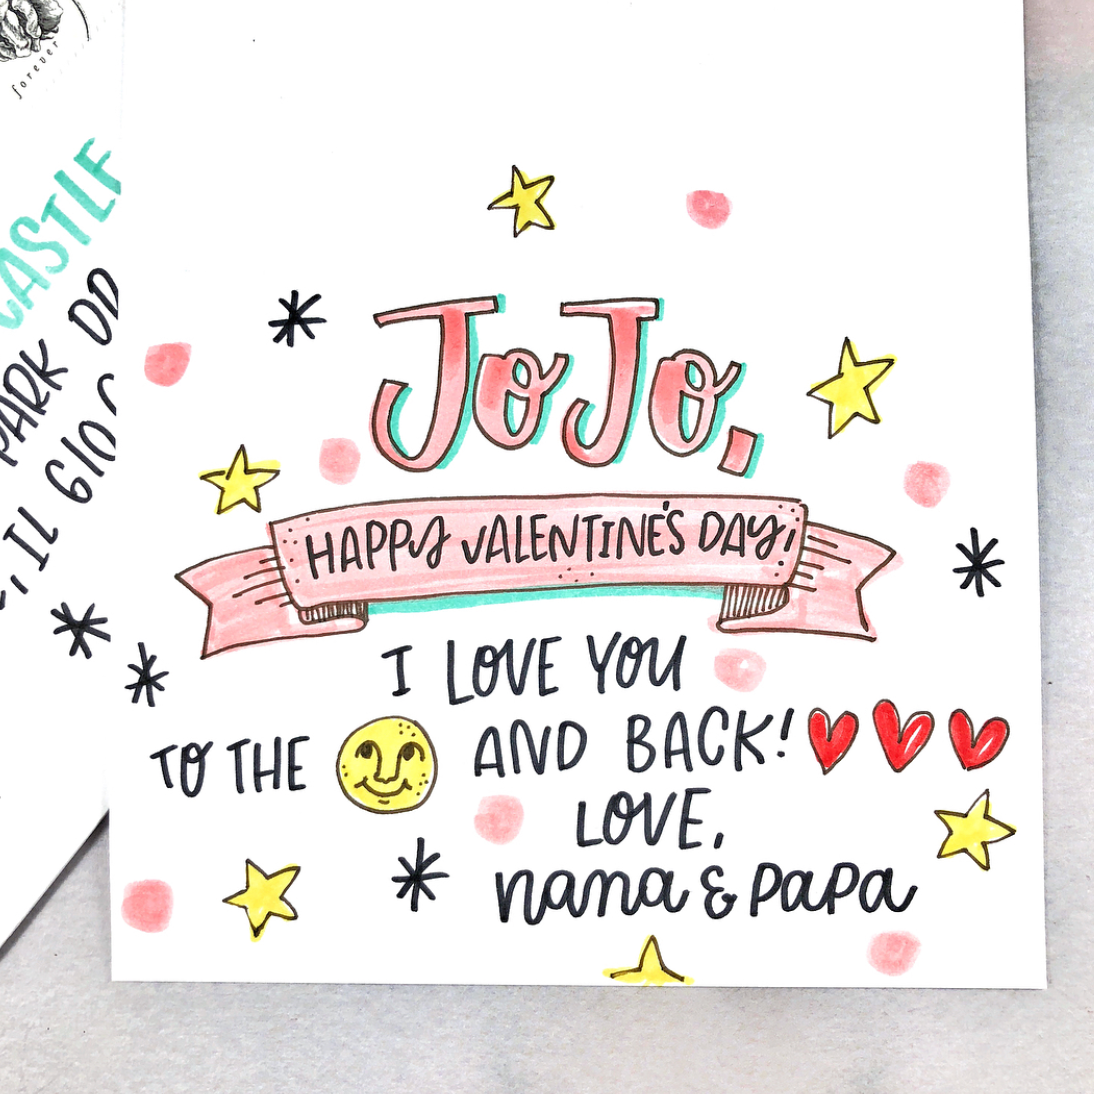 forever
CASTLE
PARK
IL 610
JoJo,
HAPPY VALENTINE'S DAY,
I LOVE YOU
TO THE AND BACK!
LOVE,
nana & papa